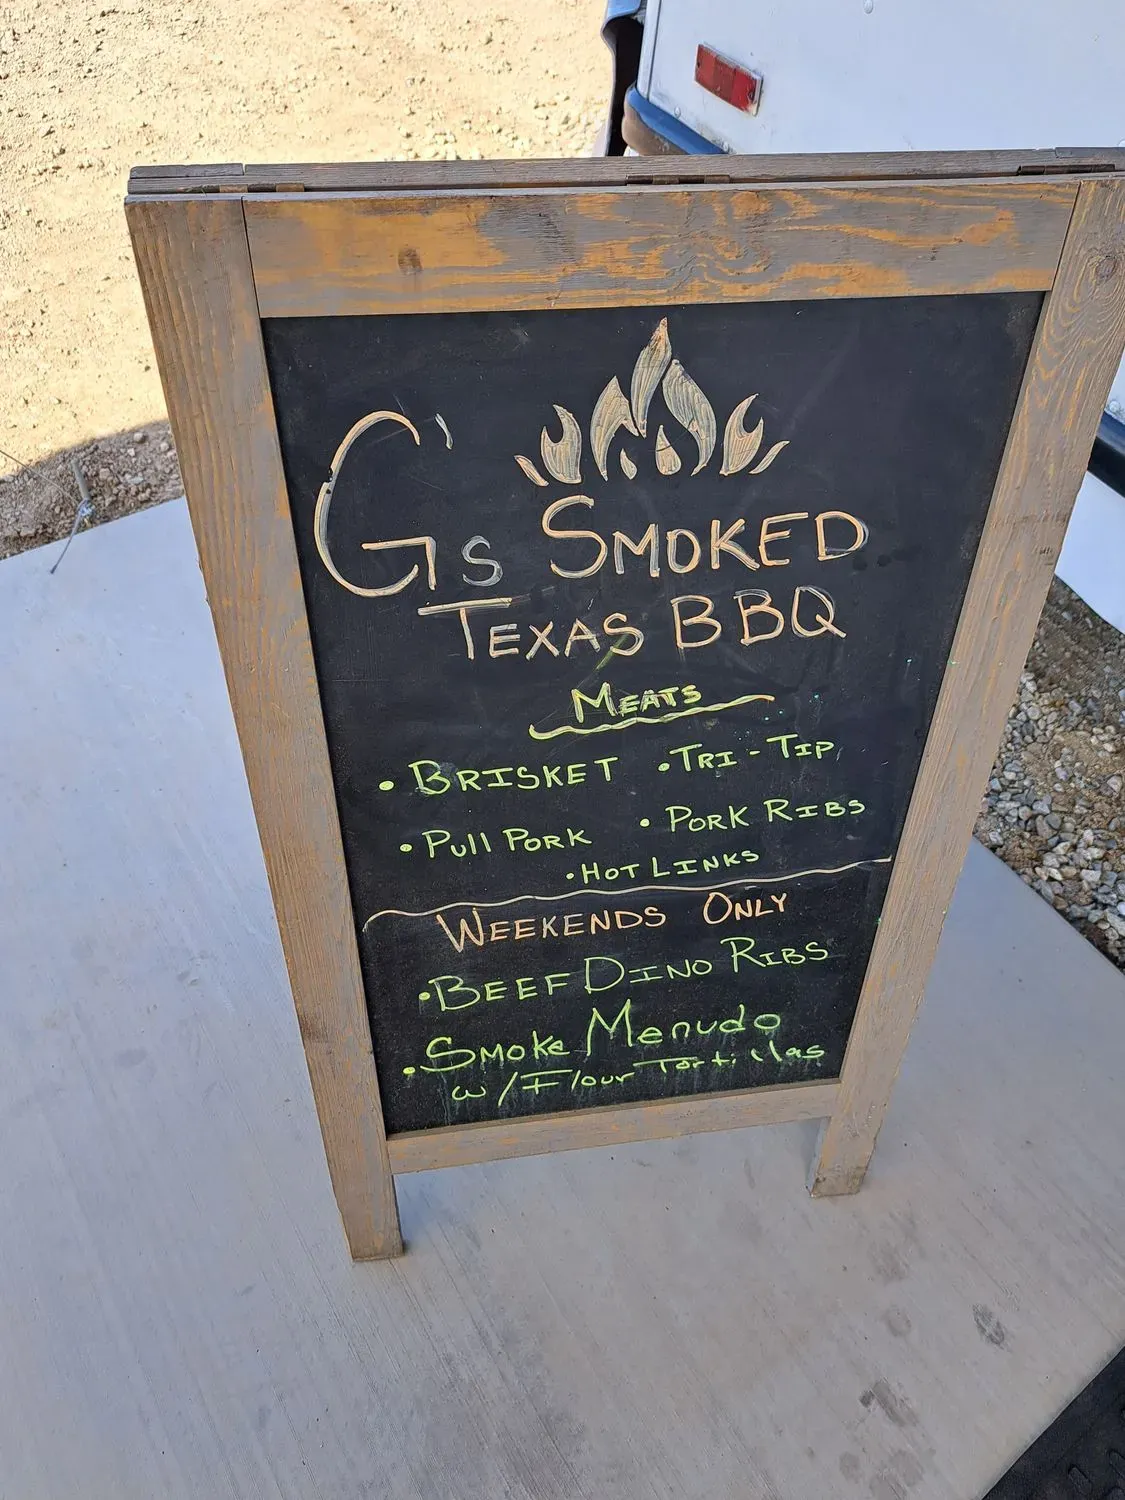 G's SMOKED
TEXAS BBQ
MEATS
• BRISKET • TRI-TIP
• Pull PORK • PORK RIBS
• HOT LINKS
WEEKENDS ONLY
• BEEF DINO RIBS
• SMOKe Menudo
w/Flour Tortillas